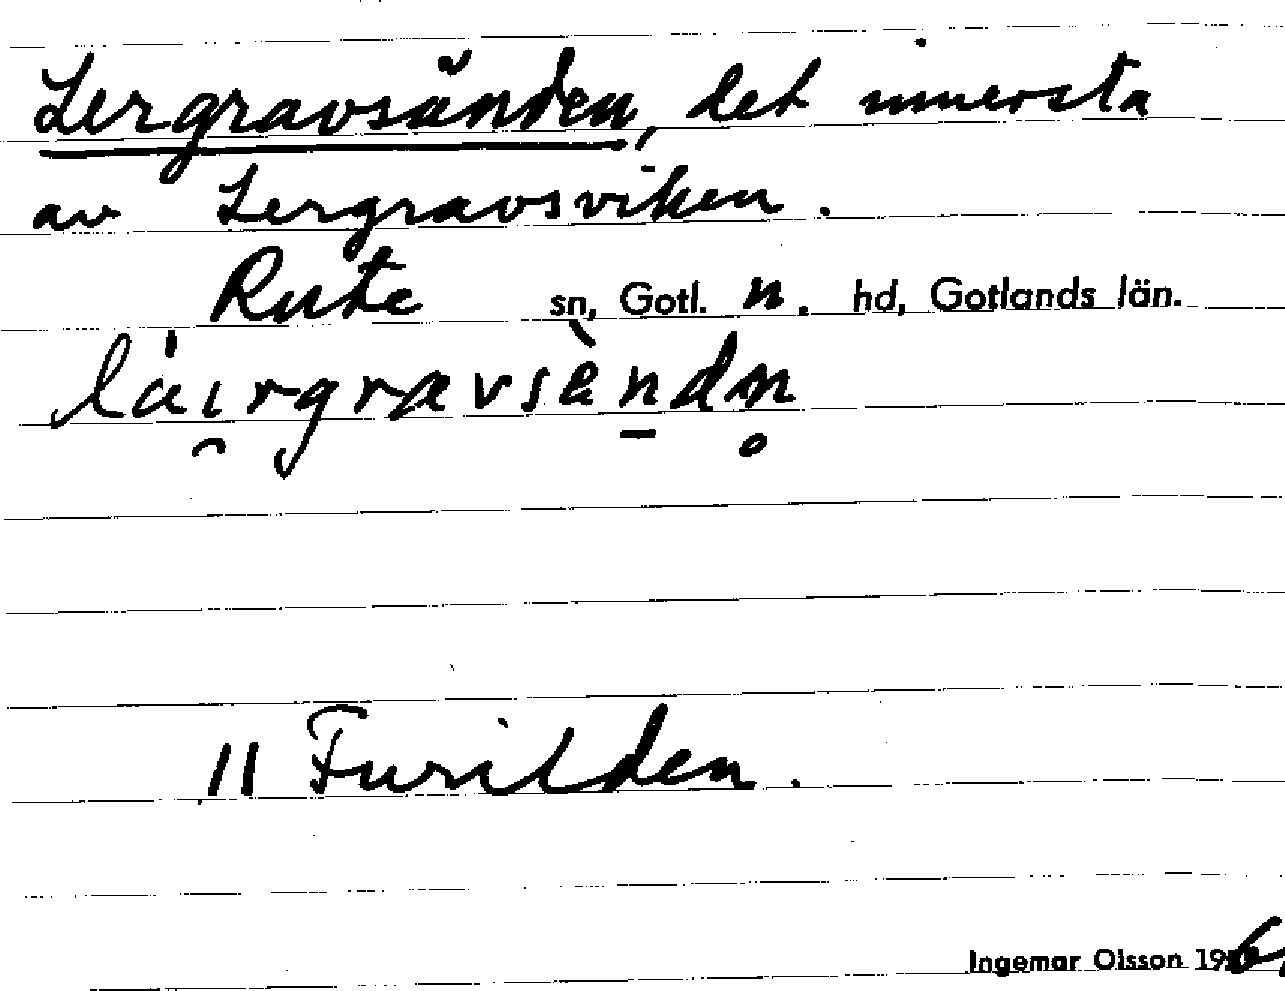 Lergravsänden, det innersta
av Lergravsviken.
Rute sn, Gotl. n. hd, Gotlands län.
lái̯rgravsèn̠dn̥
11 Furilden.
Ingemar Olsson 196